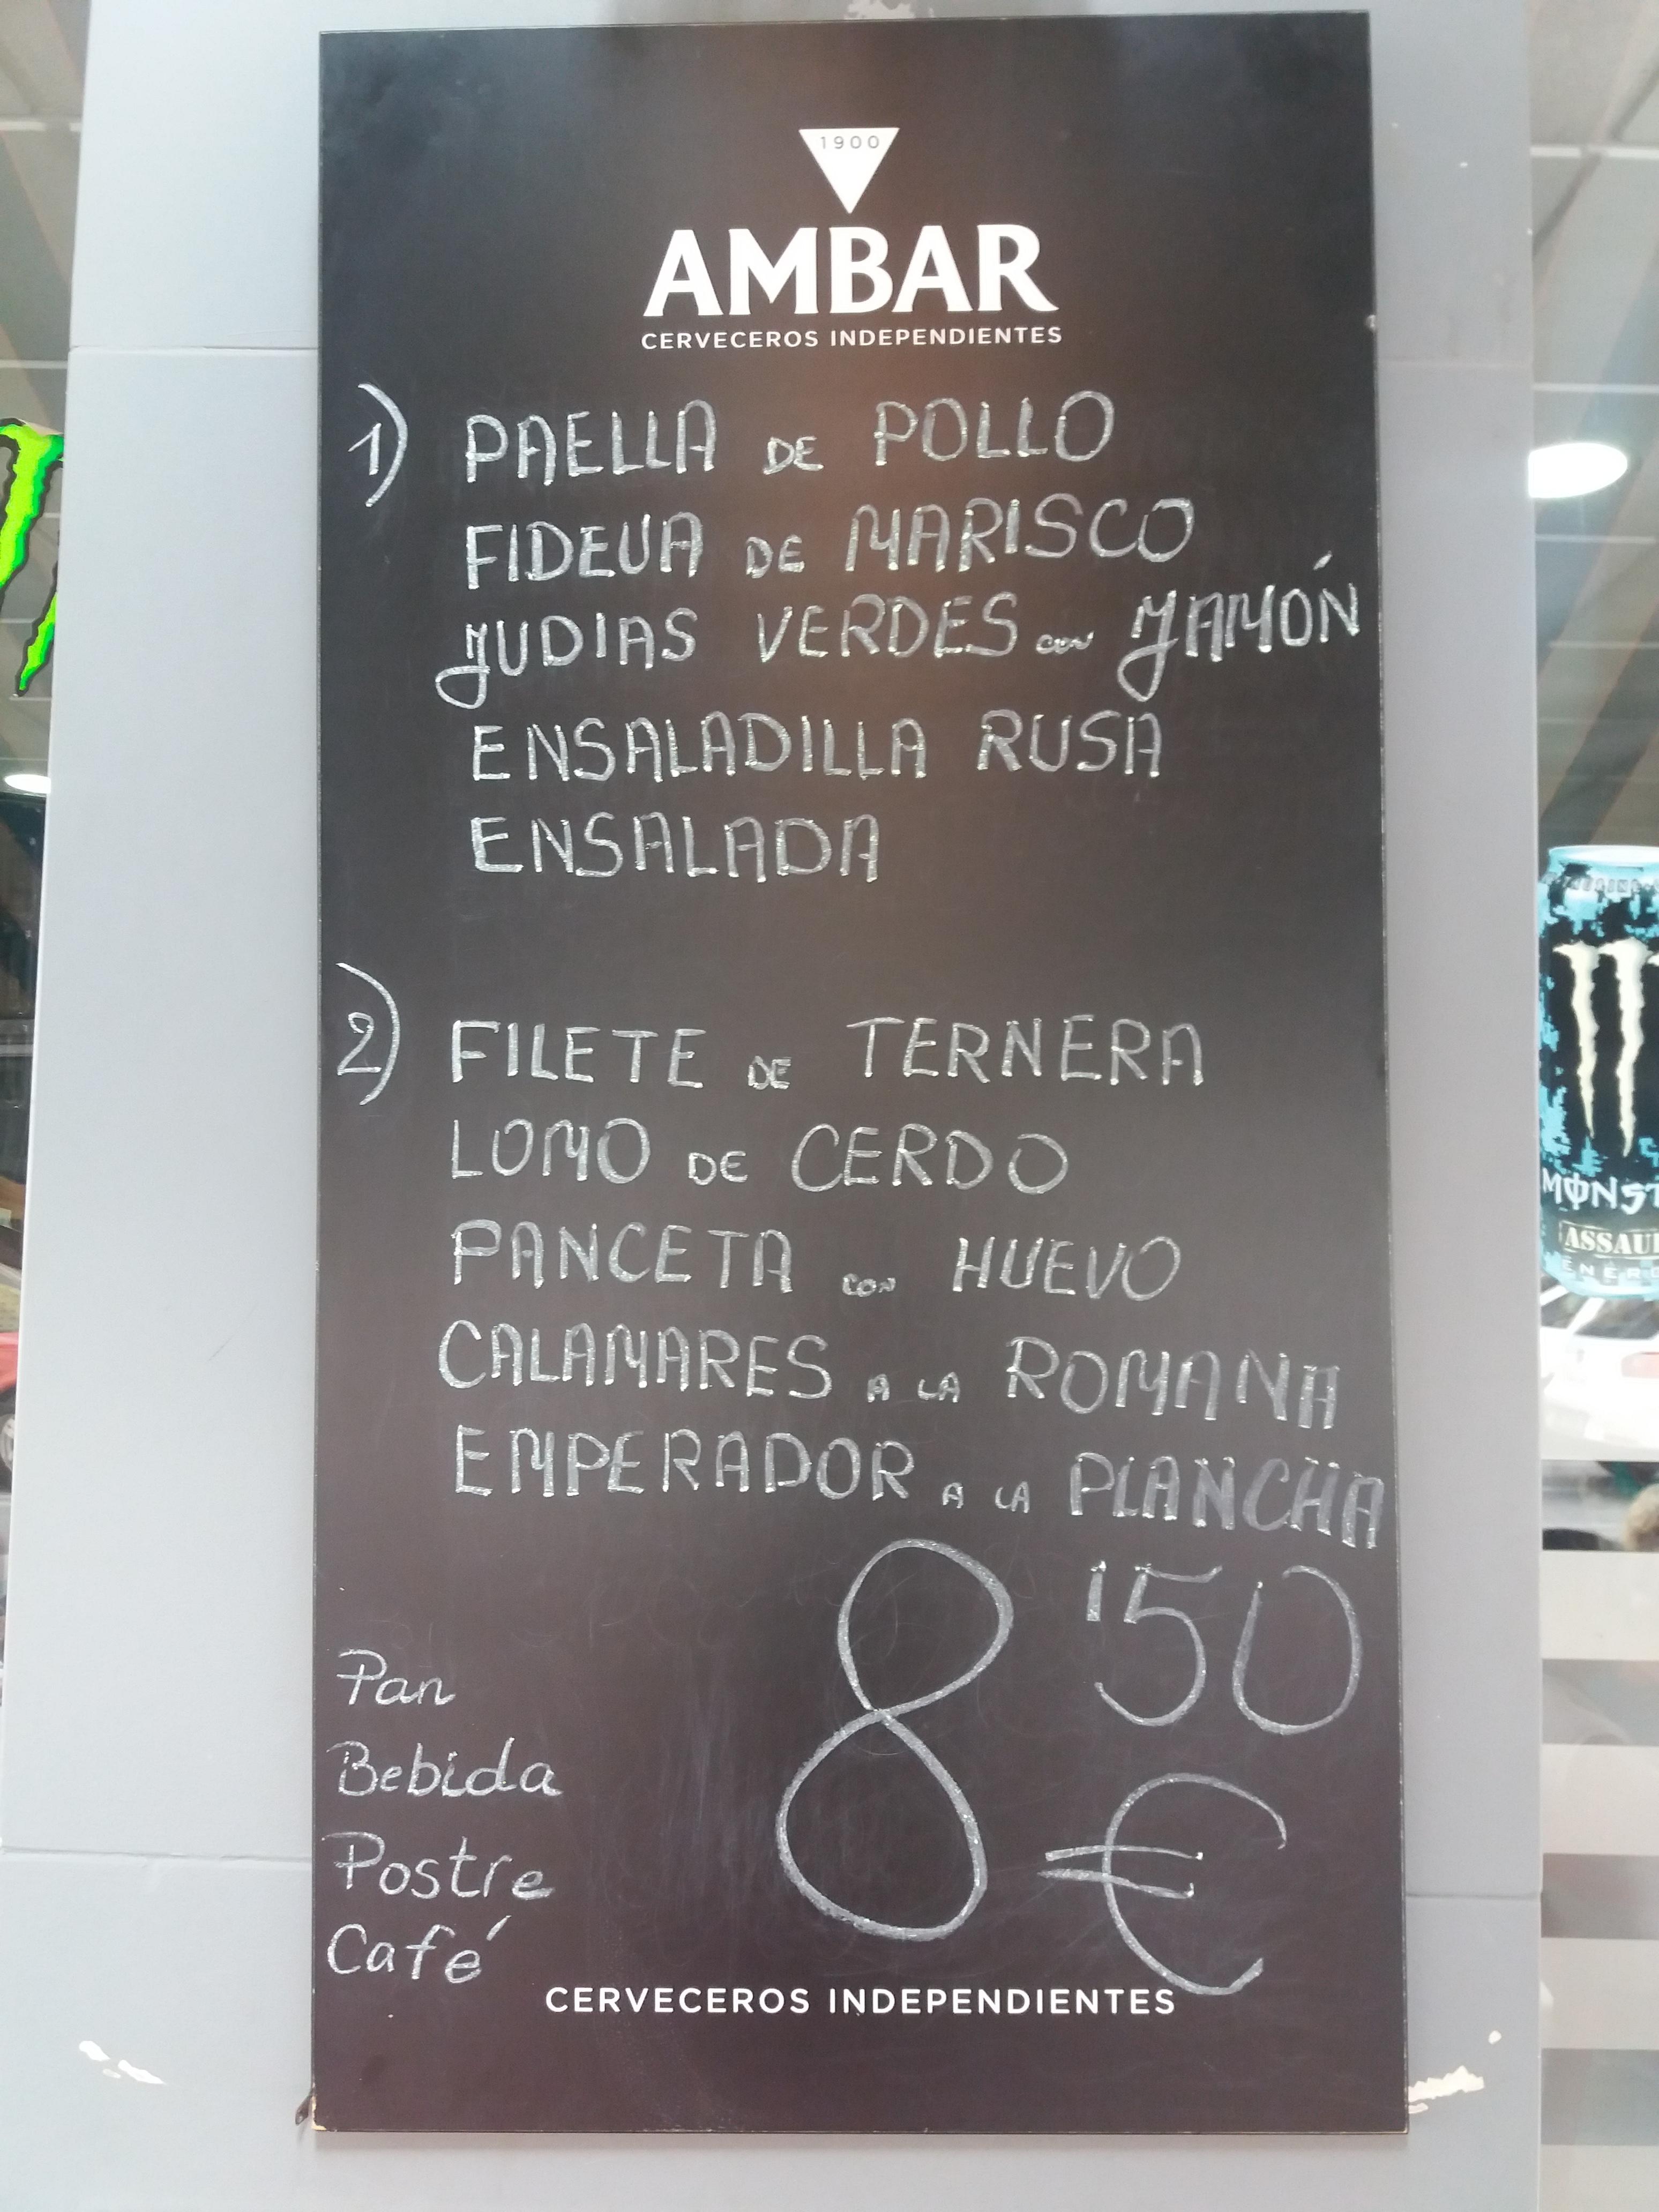 1900
AMBAR
CERVECEROS INDEPENDIENTES
1) PAELLA DE POLLO
FIDEUA DE MARISCO
JUDIAS VERDES con JAMÓN
ENSALADILLA RUSA
ENSALADA
2) FILETE DE TERNERA
LOMO DE CERDO
PANCETA CON HUEVO
CALAMARES A LA ROMANA
EMPERADOR A LA PLANCHA
8'50
€
Pan
Bebida
Postre
Café
CERVECEROS INDEPENDIENTES